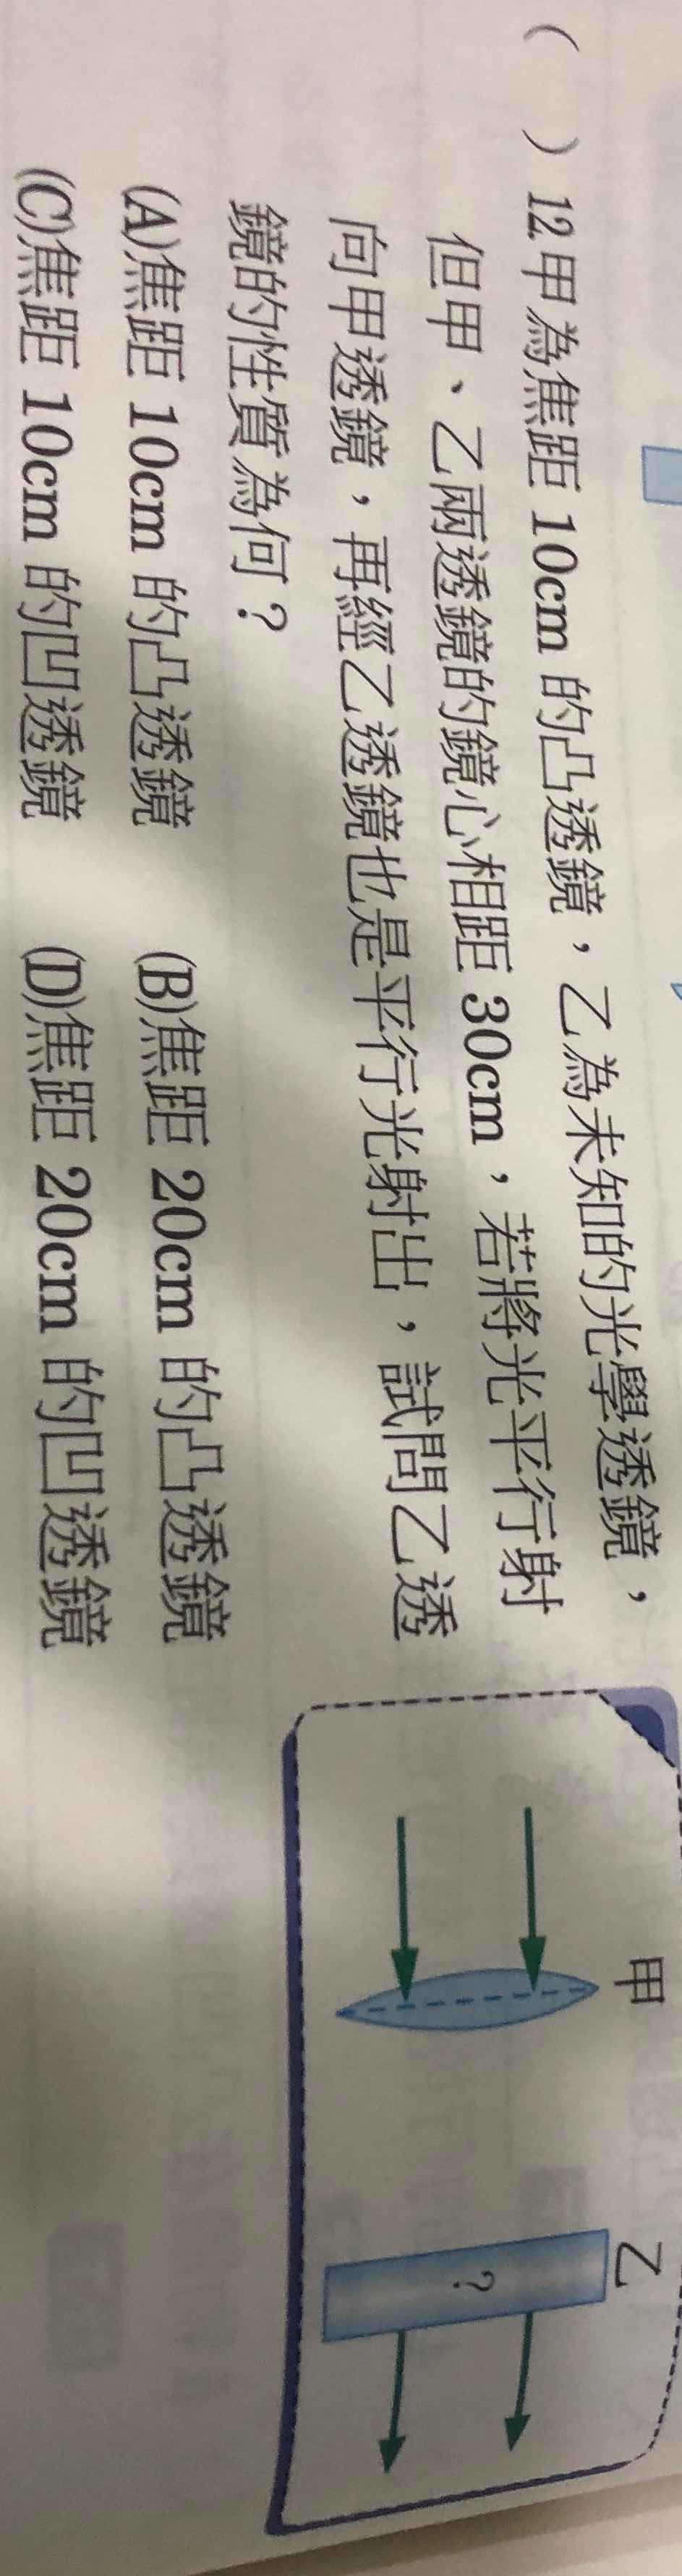 (　)12.甲為焦距 10cm 的凸透鏡，乙為未知的光學透鏡，
但甲、乙兩透鏡的鏡心相距 30cm，若將光平行射
向甲透鏡，再經乙透鏡也是平行光射出，試問乙透
鏡的性質為何？
(A)焦距 10cm 的凸透鏡　(B)焦距 20cm 的凸透鏡
(C)焦距 10cm 的凹透鏡　(D)焦距 20cm 的凹透鏡
甲　乙
?